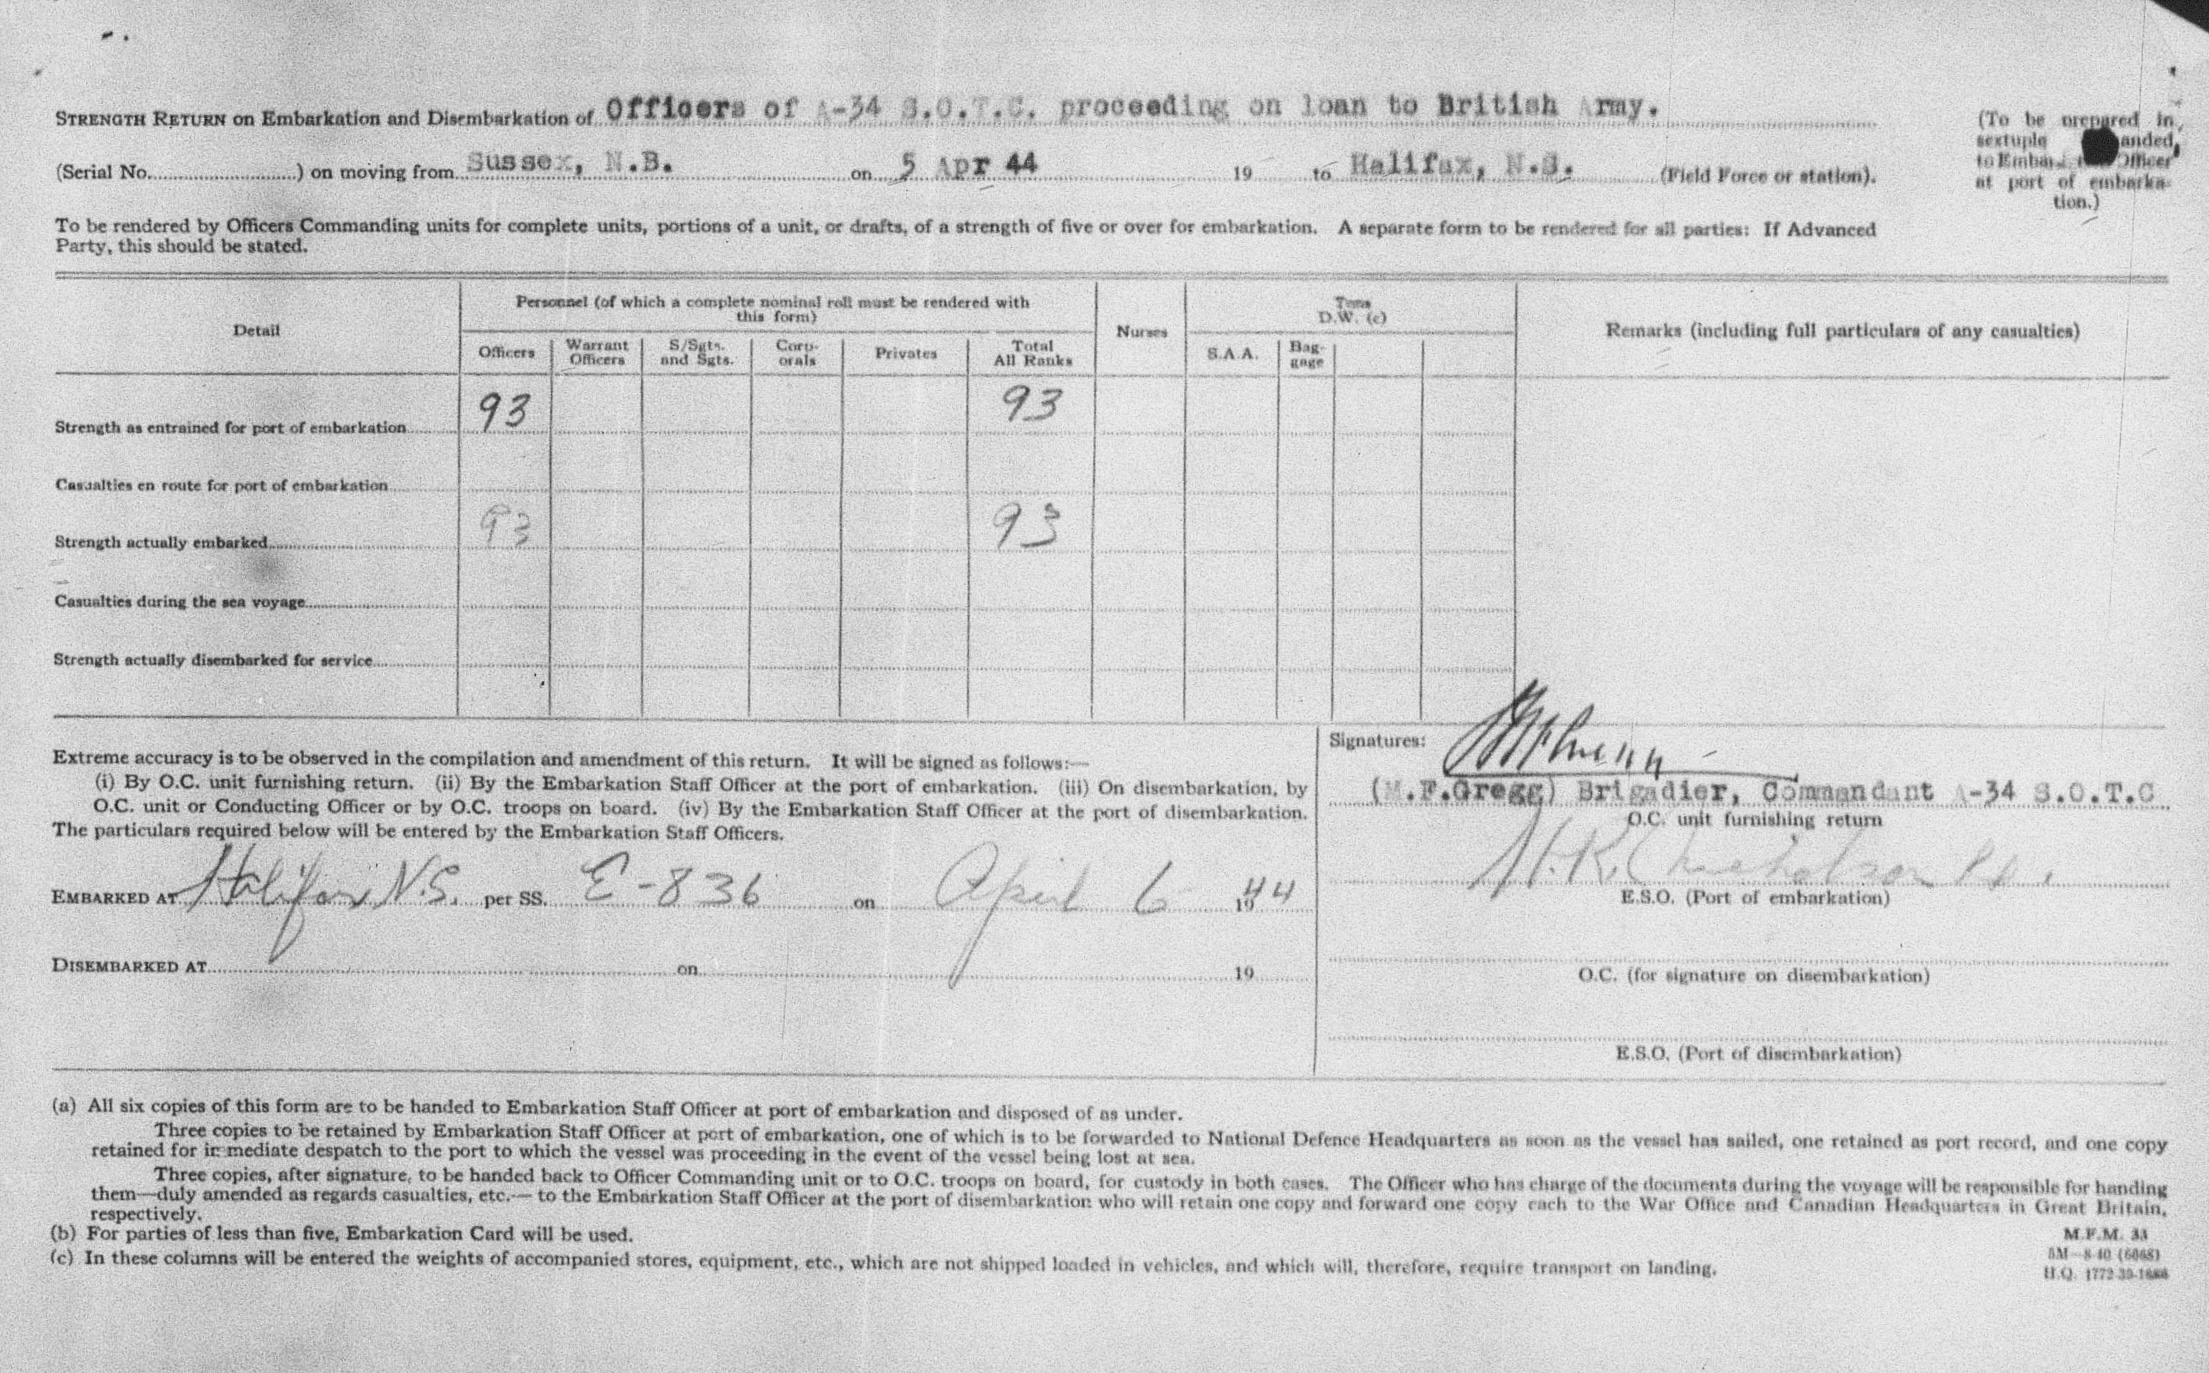 STRENGTH RETURN on Embarkation and Disembarkation of Officers of A-34 S.O.T.C. proceeding on loan to British Army.
(To be prepared in
sextuple anded
to Embar Officer
at port of embarka-
tion.)
(Serial No. ) on moving from Sussex, N.B. on 5 Apr 44 19 to Halifax, N.S. (Field Force or station).
To be rendered by Officers Commanding units for complete units, portions of a unit, or drafts, of a strength of five or over for embarkation. A separate form to be rendered for all parties: If Advanced
Party, this should be stated.
Detail
Personnel (of which a complete nominal roll must be rendered with
this form)
Officers
Warrant
Officers
S/Sgts.
and Sgts.
Corp-
orals
Privates
Total
All Ranks
Nurses
Tons
D.W. (c)
S.A.A.
Bag-
gage
Remarks (including full particulars of any casualties)
Strength as entrained for port of embarkation 93 93
Casualties en route for port of embarkation
Strength actually embarked 93 93
Casualties during the sea voyage
Strength actually disembarked for service
Extreme accuracy is to be observed in the compilation and amendment of this return. It will be signed as follows:—
(i) By O.C. unit furnishing return. (ii) By the Embarkation Staff Officer at the port of embarkation. (iii) On disembarkation, by
O.C. unit or Conducting Officer or by O.C. troops on board. (iv) By the Embarkation Staff Officer at the port of disembarkation.
The particulars required below will be entered by the Embarkation Staff Officers.
EMBARKED AT Halifax N.S. per SS. E-836 on April 6 1944
DISEMBARKED AT on 19
Signatures:
(M.F.Gregg) Brigadier, Commandant A-34 S.O.T.C
O.C. unit furnishing return
Nicholson
E.S.O. (Port of embarkation)
O.C. (for signature on disembarkation)
E.S.O. (Port of disembarkation)
(a) All six copies of this form are to be handed to Embarkation Staff Officer at port of embarkation and disposed of as under.
Three copies to be retained by Embarkation Staff Officer at port of embarkation, one of which is to be forwarded to National Defence Headquarters as soon as the vessel has sailed, one retained as port record, and one copy
retained for immediate despatch to the port to which the vessel was proceeding in the event of the vessel being lost at sea.
Three copies, after signature, to be handed back to Officer Commanding unit or to O.C. troops on board, for custody in both cases. The Officer who has charge of the documents during the voyage will be responsible for handing
them—duly amended as regards casualties, etc.— to the Embarkation Staff Officer at the port of disembarkation who will retain one copy and forward one copy each to the War Office and Canadian Headquarters in Great Britain,
respectively.
(b) For parties of less than five, Embarkation Card will be used.
(c) In these columns will be entered the weights of accompanied stores, equipment, etc., which are not shipped loaded in vehicles, and which will, therefore, require transport on landing.
M.F.M. 33
5M—8-40 (6068)
H.Q. 1772-39-